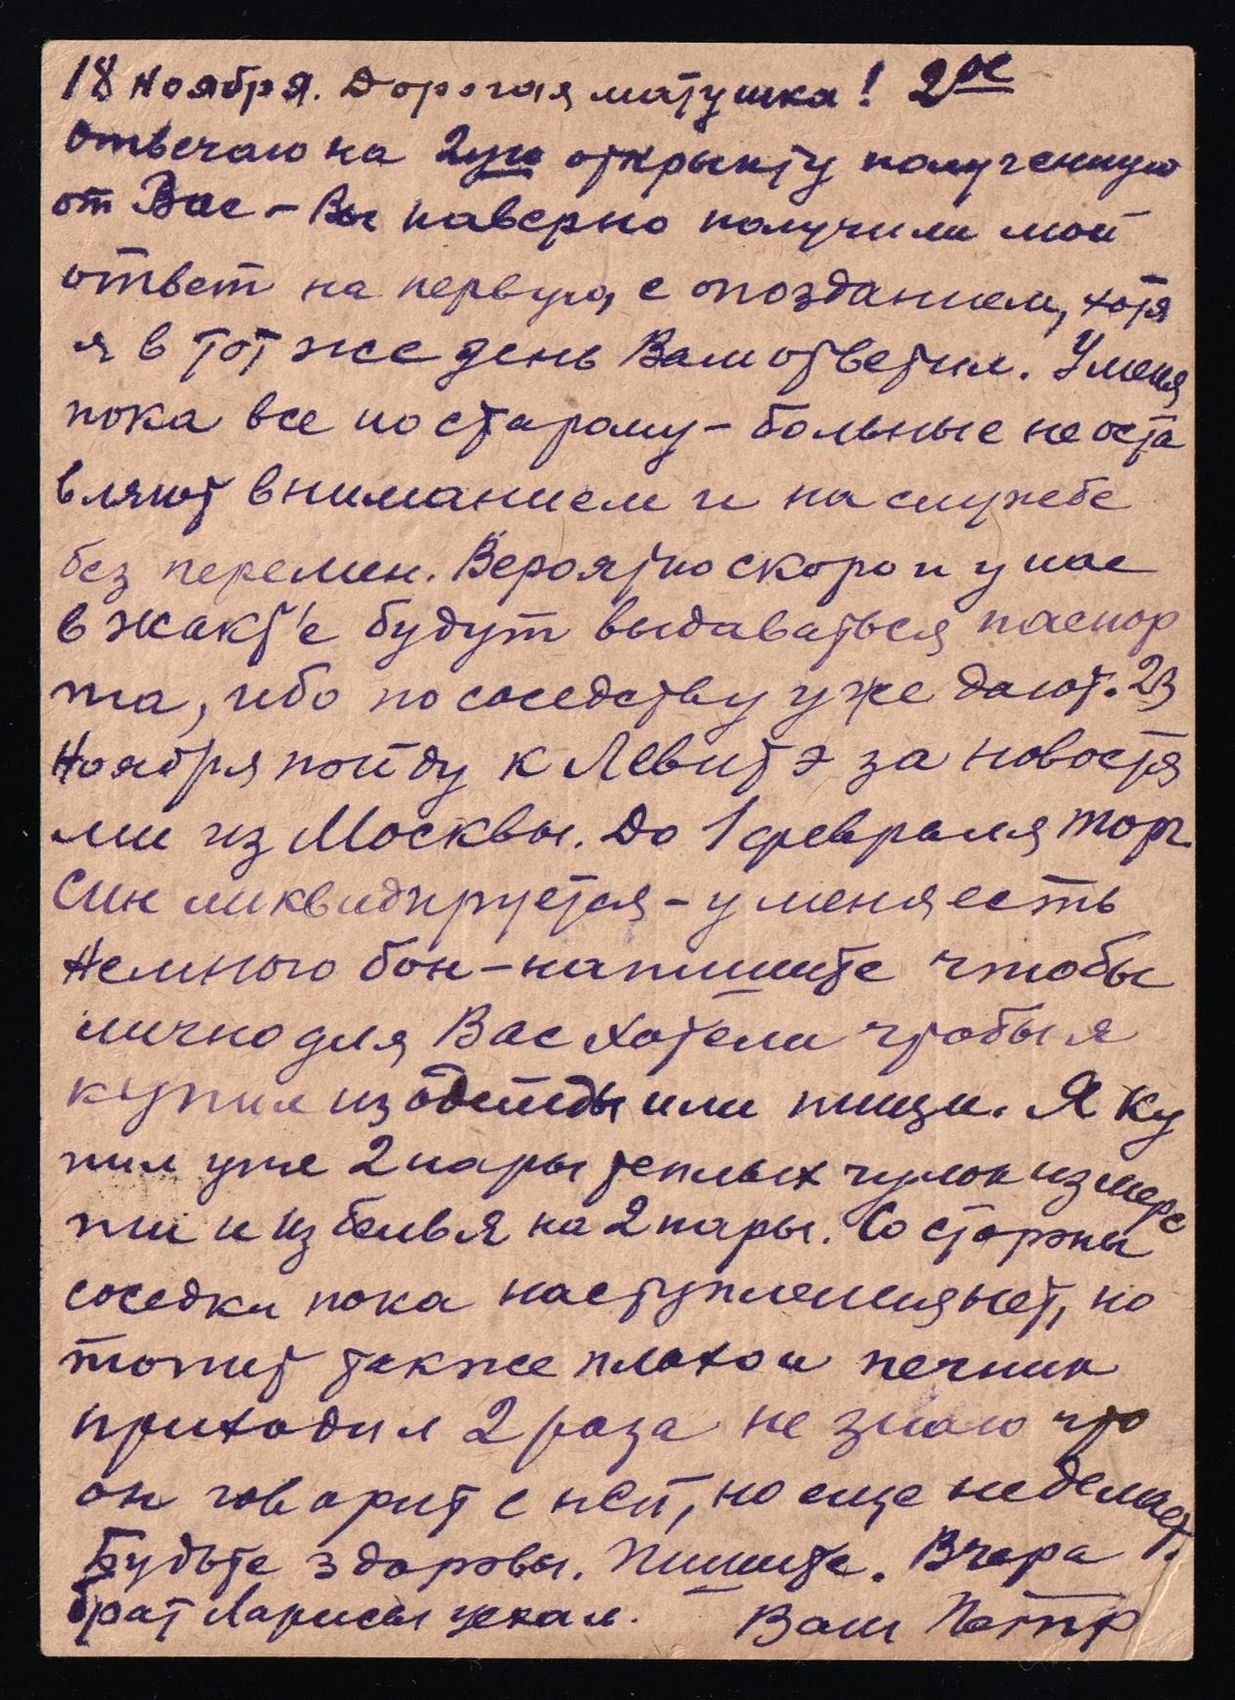 18 Ноября. Дорогая матушка! 2ое
Отвечаю на 2ую открытку полученную
от Вас – Вы наверно получили мой
ответ на первую, с опозданием, хотя
я в тот же день Вам ответил. У меня
пока все по старому – больные не оста
вляют вниманием и на службе
без перемен. Вероятно скоро и у нас
в жакт'е будут выдаваться паспор
та, ибо по соседству уже дают. 23
Ноября пойду к Левитэ за новостя
ми из Москвы. До 1 февраля торг
син ликвидируется – у меня есть
немного бон – напишите чтобы
лично для Вас хотели чтобы я
купил из одежды или пищи. Я ку
пил уже 2 пары теплых чулок из шерс
ти и из белья на 2 пары. Со стороны
соседки пока наступления нет, но
топит также плохо и печник
приходил 2 раза не знаю что
он говорит с ней, но еще не делает.
Будьте здоровы. Пишите. Вчера
брат Ларисы уехал. Ваш Петр